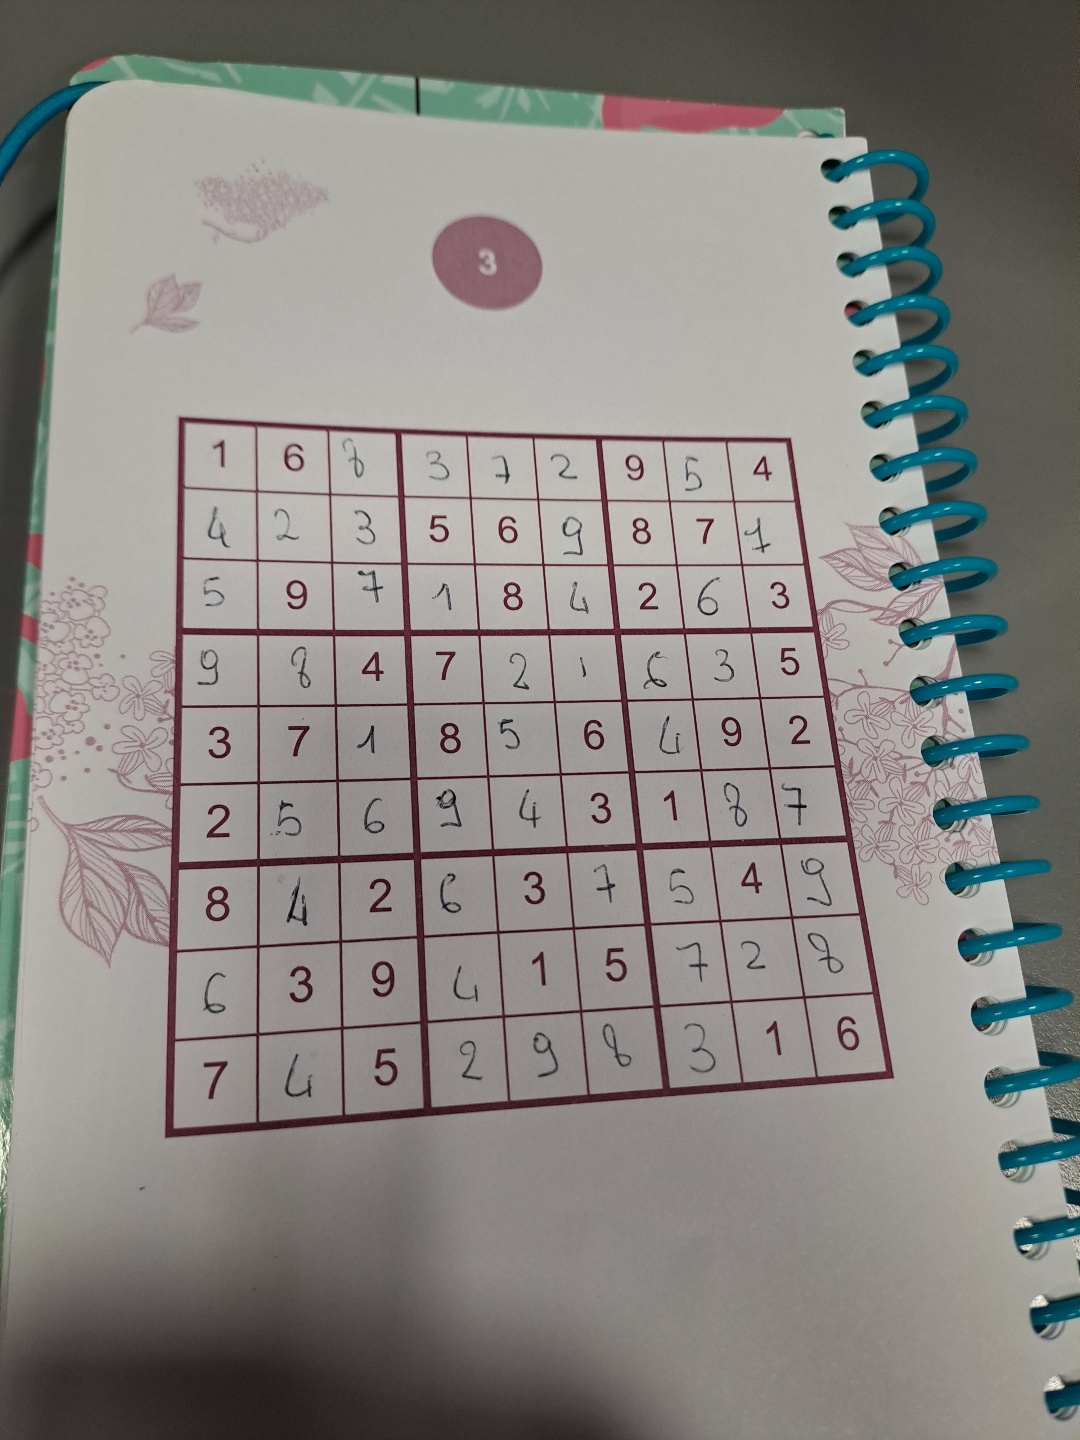 3
1 6 8 3 7 2 9 5 4
4 2 3 5 6 9 8 7 1
5 9 7 1 8 4 2 6 3
9 8 4 7 2 1 6 3 5
3 7 1 8 5 6 4 9 2
2 5 6 9 4 3 1 8 7
8 4 2 6 3 7 5 4 9
6 3 9 4 1 5 7 2 8
7 4 5 2 9 8 3 1 6